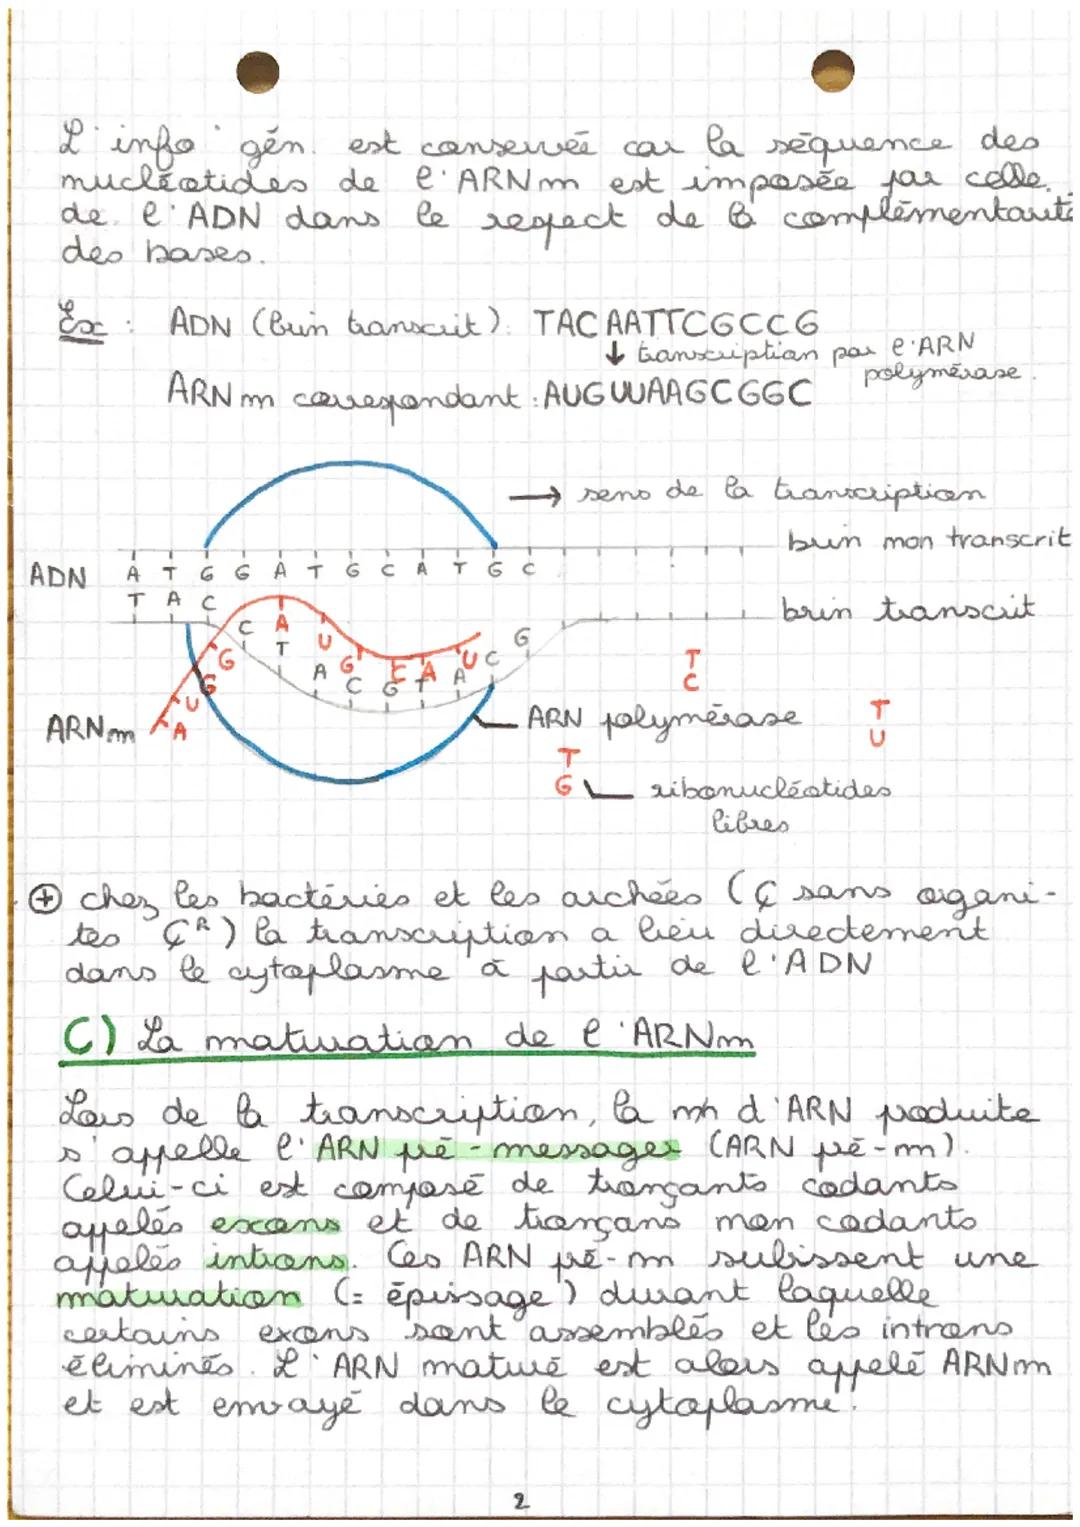 L'info gén. est conservée car la séquence des
nucléotides de l'ARNm est imposée par celle
de l'ADN dans le respect de la complémentarité
des bases.
Ex : ADN (brin transcrit): TACAATTCGCCG
↓ transcription par l'ARN
polymérase.
ARNm correspondant : AUGUUAAGCGGC
→ sens de la transcription
brin non transcrit
ADN A T G G A T G C A T G C
T A C C T A C G T A C G
brin transcrit
A U G G A U G C A U
ARNm
ARN polymérase
C
U
G
ribonucléotides
libres
⊕ chez les bactéries et les archées (Ȼ sans organi-
tes Ȼᴿ) la transcription a lieu directement
dans le cytoplasme à partir de l'ADN
C) La maturation de l'ARNm
Lors de la transcription, la mh d'ARN produite
s'appelle l'ARN pré-messager (ARN pré-m).
Celui-ci est composé de tronçants codants
appelés exons et de tronçans non codants
appelés introns. Ces ARN pré-m subissent une
maturation (= épissage) durant laquelle
certains exons sont assemblés et les introns
éliminés. L'ARN maturé est alors appelé ARNm
et est envoyé dans le cytoplasme.
2